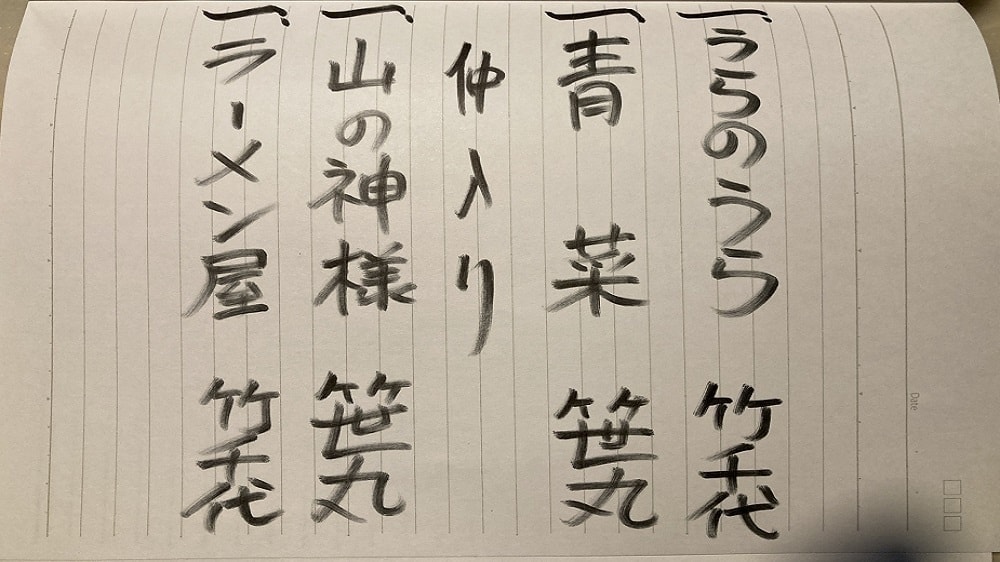 一、うらのうら 竹千代
一、青菜 笹丸
仲入り
一、山の神様 笹丸
一、ラーメン屋 竹千代
Date